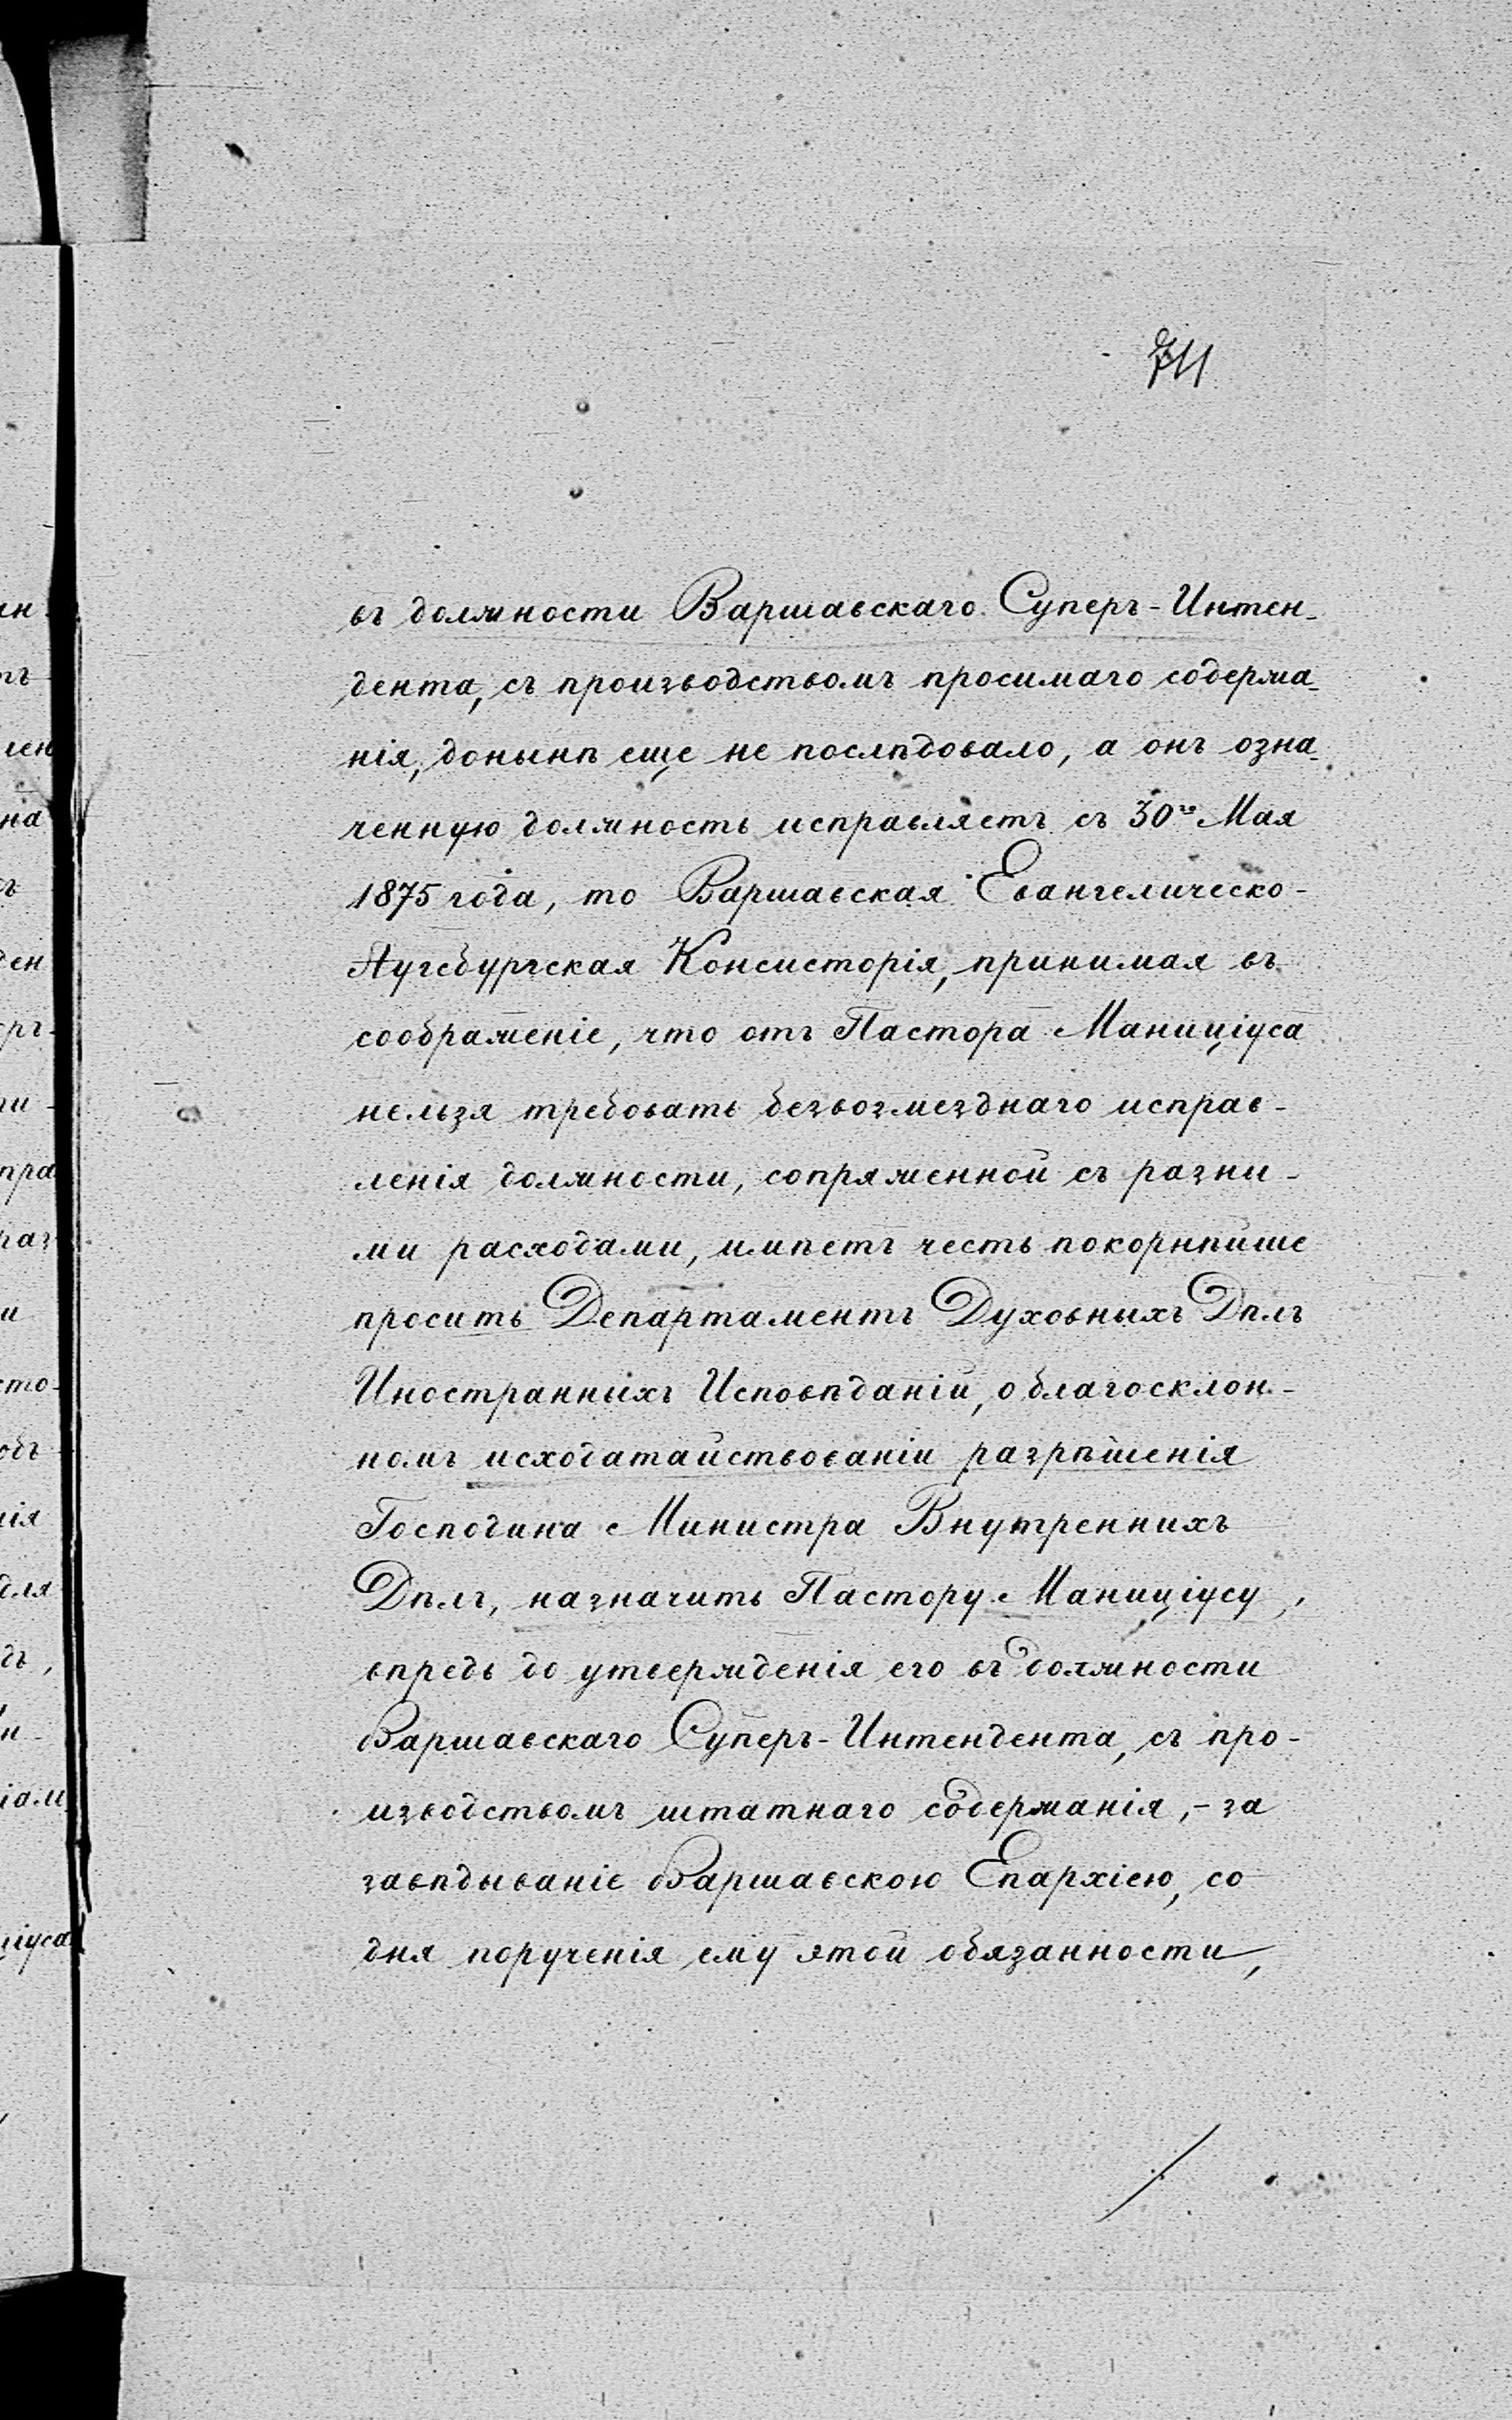 въ должности Варшавскаго Суперъ-Интен-
дента, съ производствомъ просимаго содержа-
нія, донынѣ еще не послѣдовало, а онъ озна-
ченную должность исправляетъ съ 30го Мая
1875 года, то Варшавская Евангелическо-
Аугсбургская Консисторія, принимая въ
соображеніе, что отъ Пастора Маниціуса
нельзя требовать безвозмезднаго исправ-
ленія должности, сопряженной съ разны-
ми расходами, имѣетъ честь покорнѣйше
просить Департаментъ Духовныхъ Дѣлъ
Иностранныхъ Исповѣданій, о благосклон-
номъ исходатайствованіи разрѣшенія
Господина Министра Внутреннихъ
Дѣлъ, назначить Пастору Маниціусу,
впредь до утвержденія его въ должности
Варшавскаго Суперъ-Интендента, съ про-
изводствомъ штатнаго содержанія, - за
завѣдываніе Варшавскою Епархіею, со
дня порученія ему этой обязанности,